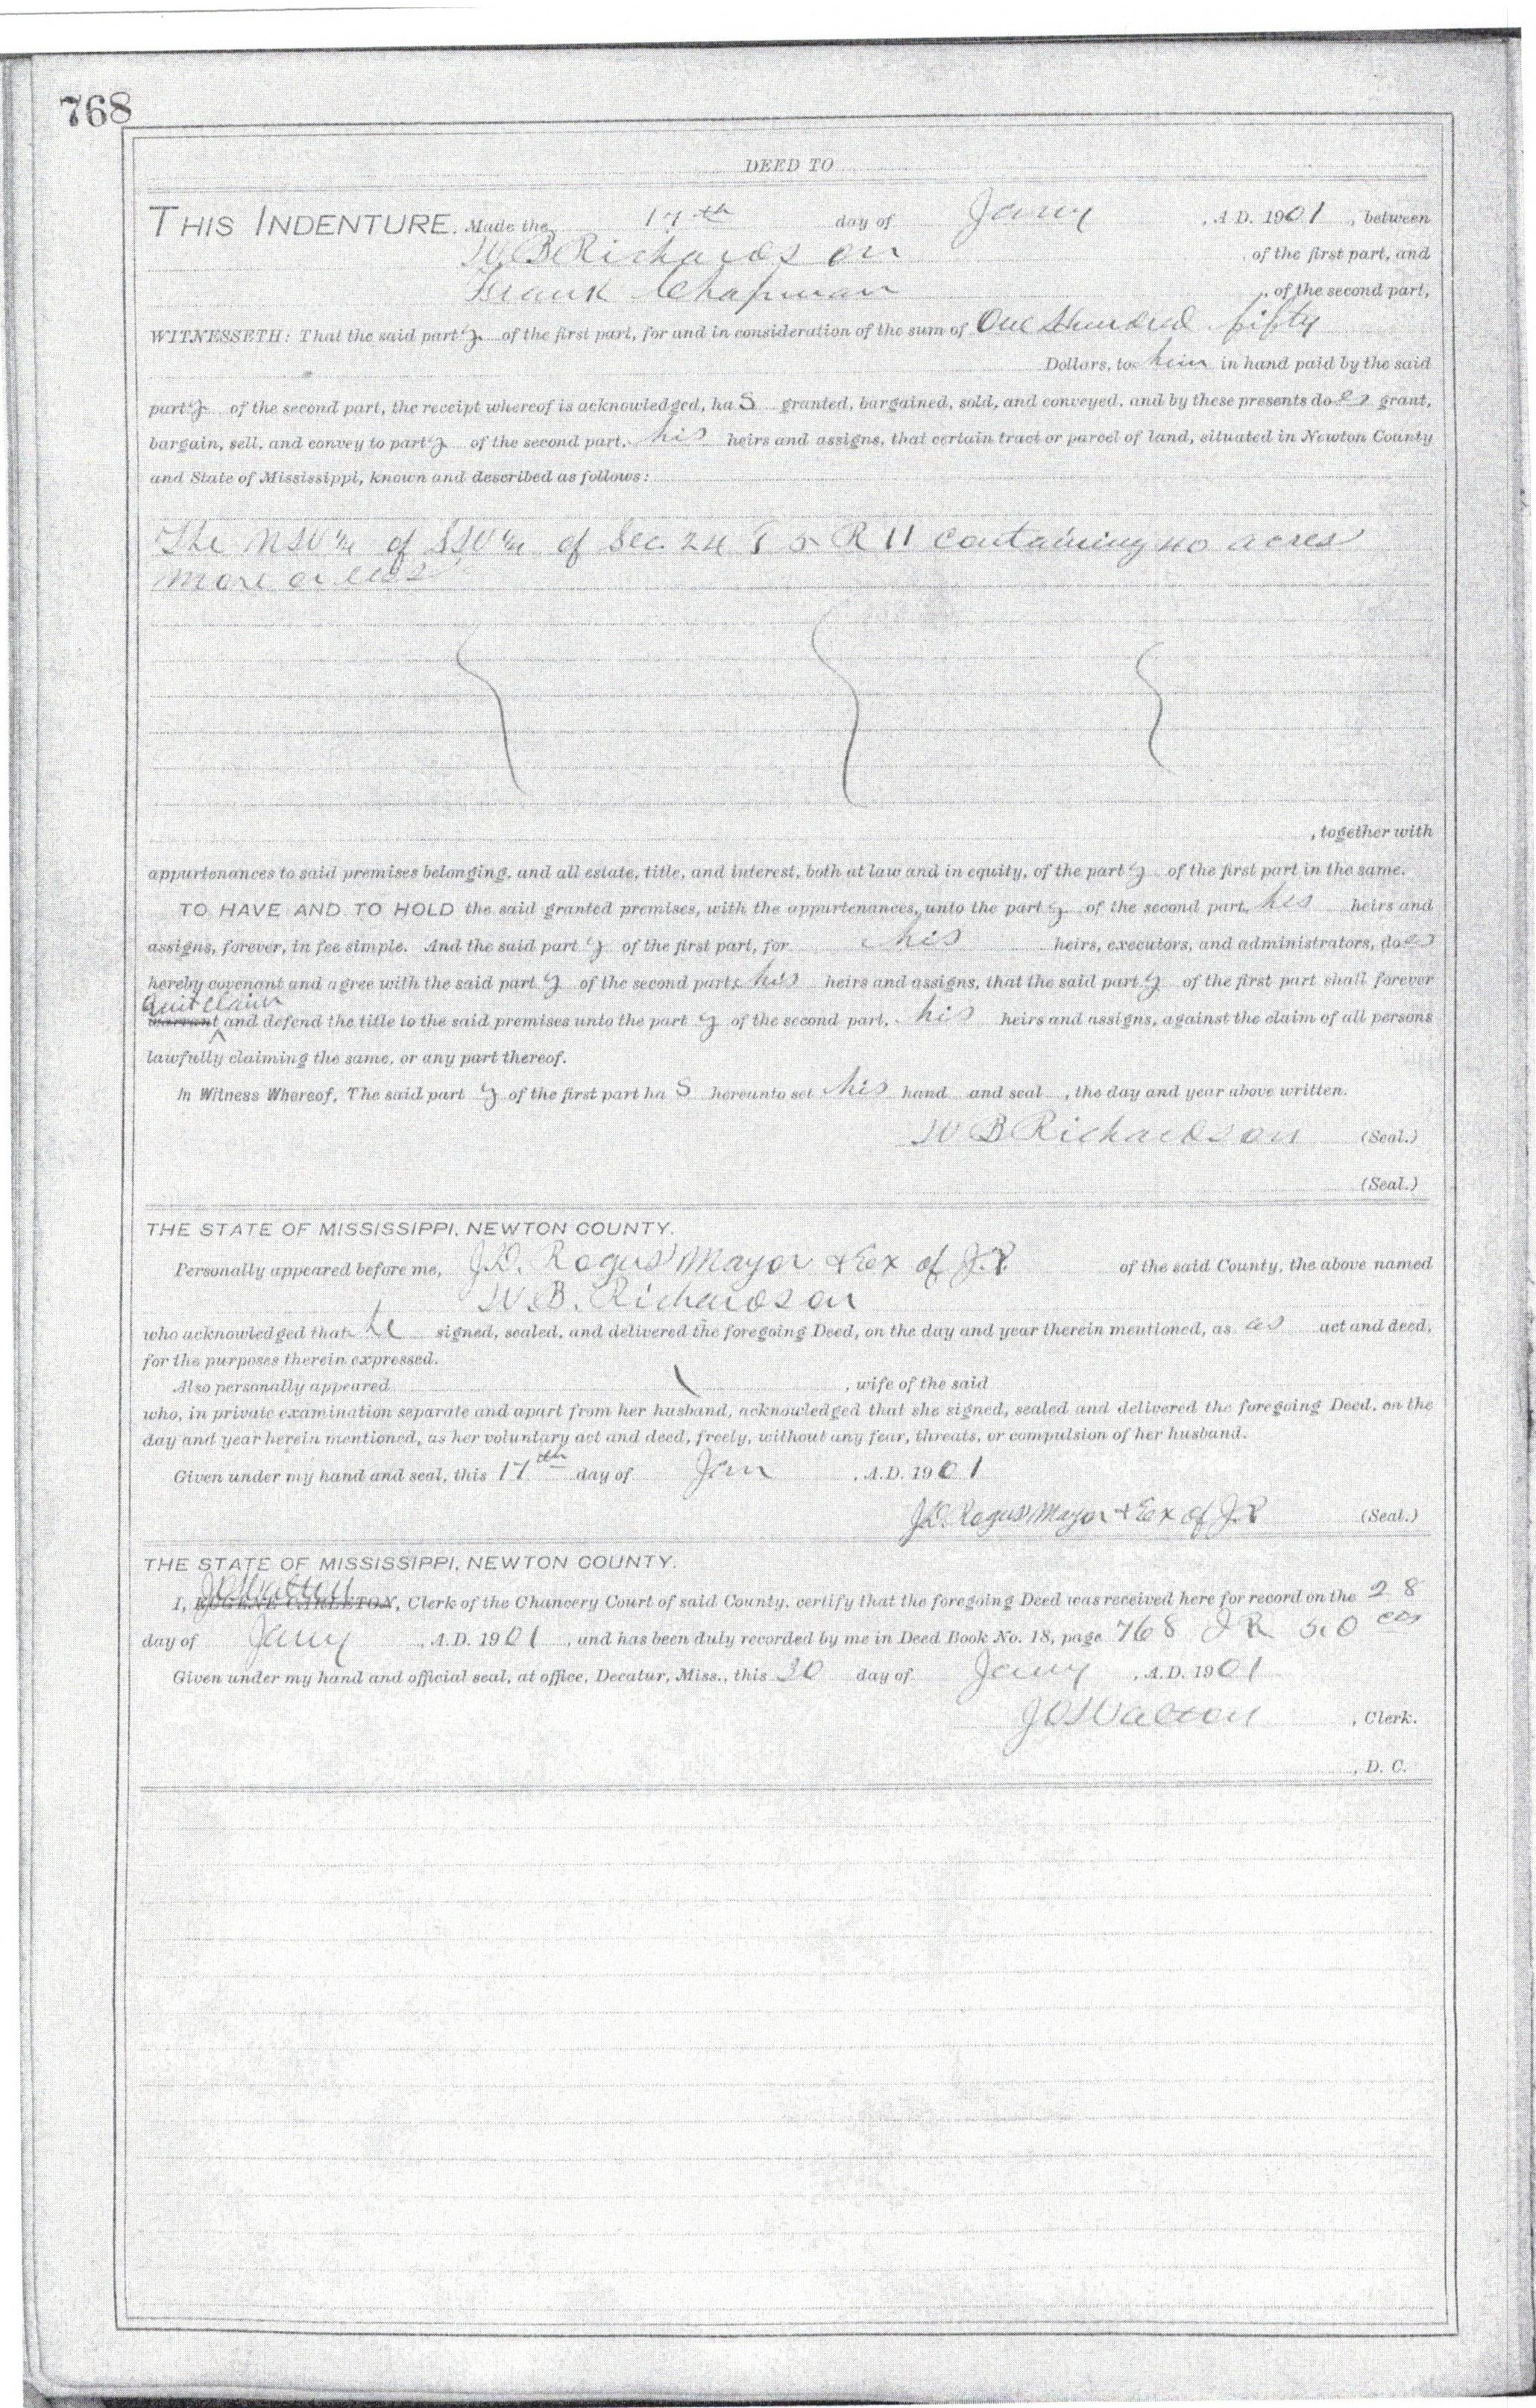 768
DEED TO
THIS INDENTURE, Made the 17th day of Jany, A. D. 1901, between
W B Richardson of the first part, and
Frank Chapman, of the second part,
WITNESSETH: That the said party of the first part, for and in consideration of the sum of One Hundred fifty
Dollars, to him in hand paid by the said
party of the second part, the receipt whereof is acknowledged, has granted, bargained, sold, and conveyed, and by these presents does grant,
bargain, sell, and convey to party of the second part, his heirs and assigns, that certain tract or parcel of land, situated in Newton County
and State of Mississippi, known and described as follows:
The NW 1/4 of SW 1/4 of Sec 24 T 5 R 11 containing 40 acres
more or less
, together with
appurtenances to said premises belonging, and all estate, title, and interest, both at law and in equity, of the party of the first part in the same.
TO HAVE AND TO HOLD the said granted premises, with the appurtenances, unto the party of the second part, his heirs and
assigns, forever, in fee simple. And the said party of the first part, for his heirs, executors, and administrators, does
hereby covenant and agree with the said party of the second part, his heirs and assigns, that the said party of the first part shall forever
Quit claim
warrant and defend the title to the said premises unto the party of the second part, his heirs and assigns, against the claim of all persons
lawfully claiming the same, or any part thereof.
In Witness Whereof, The said party of the first part has hereunto set his hand and seal, the day and year above written.
W B Richardson (Seal.)
(Seal.)
THE STATE OF MISSISSIPPI, NEWTON COUNTY.
Personally appeared before me, J.D. Mayor & Ex of J.P of the said County, the above named
W.B. Richardson
who acknowledged that he signed, sealed, and delivered the foregoing Deed, on the day and year therein mentioned, as act and deed,
for the purposes therein expressed.
Also personally appeared , wife of the said
who, in private examination separate and apart from her husband, acknowledged that she signed, sealed and delivered the foregoing Deed, on the
day and year herein mentioned, as her voluntary act and deed, freely, without any fear, threats, or compulsion of her husband.
Given under my hand and seal, this 17th day of Jan, A.D. 1901
J.D. Mayor & Ex of J.P (Seal.)
THE STATE OF MISSISSIPPI, NEWTON COUNTY.
JO Walton
I, EUGENE CARLETON, Clerk of the Chancery Court of said County, certify that the foregoing Deed was received here for record on the 28
day of Jany, A.D. 1901, and has been duly recorded by me in Deed Book No. 18, page 768
Given under my hand and official seal, at office, Decatur, Miss., this 30 day of Jany, A.D. 1901
JO Walton, Clerk.
, D. C.